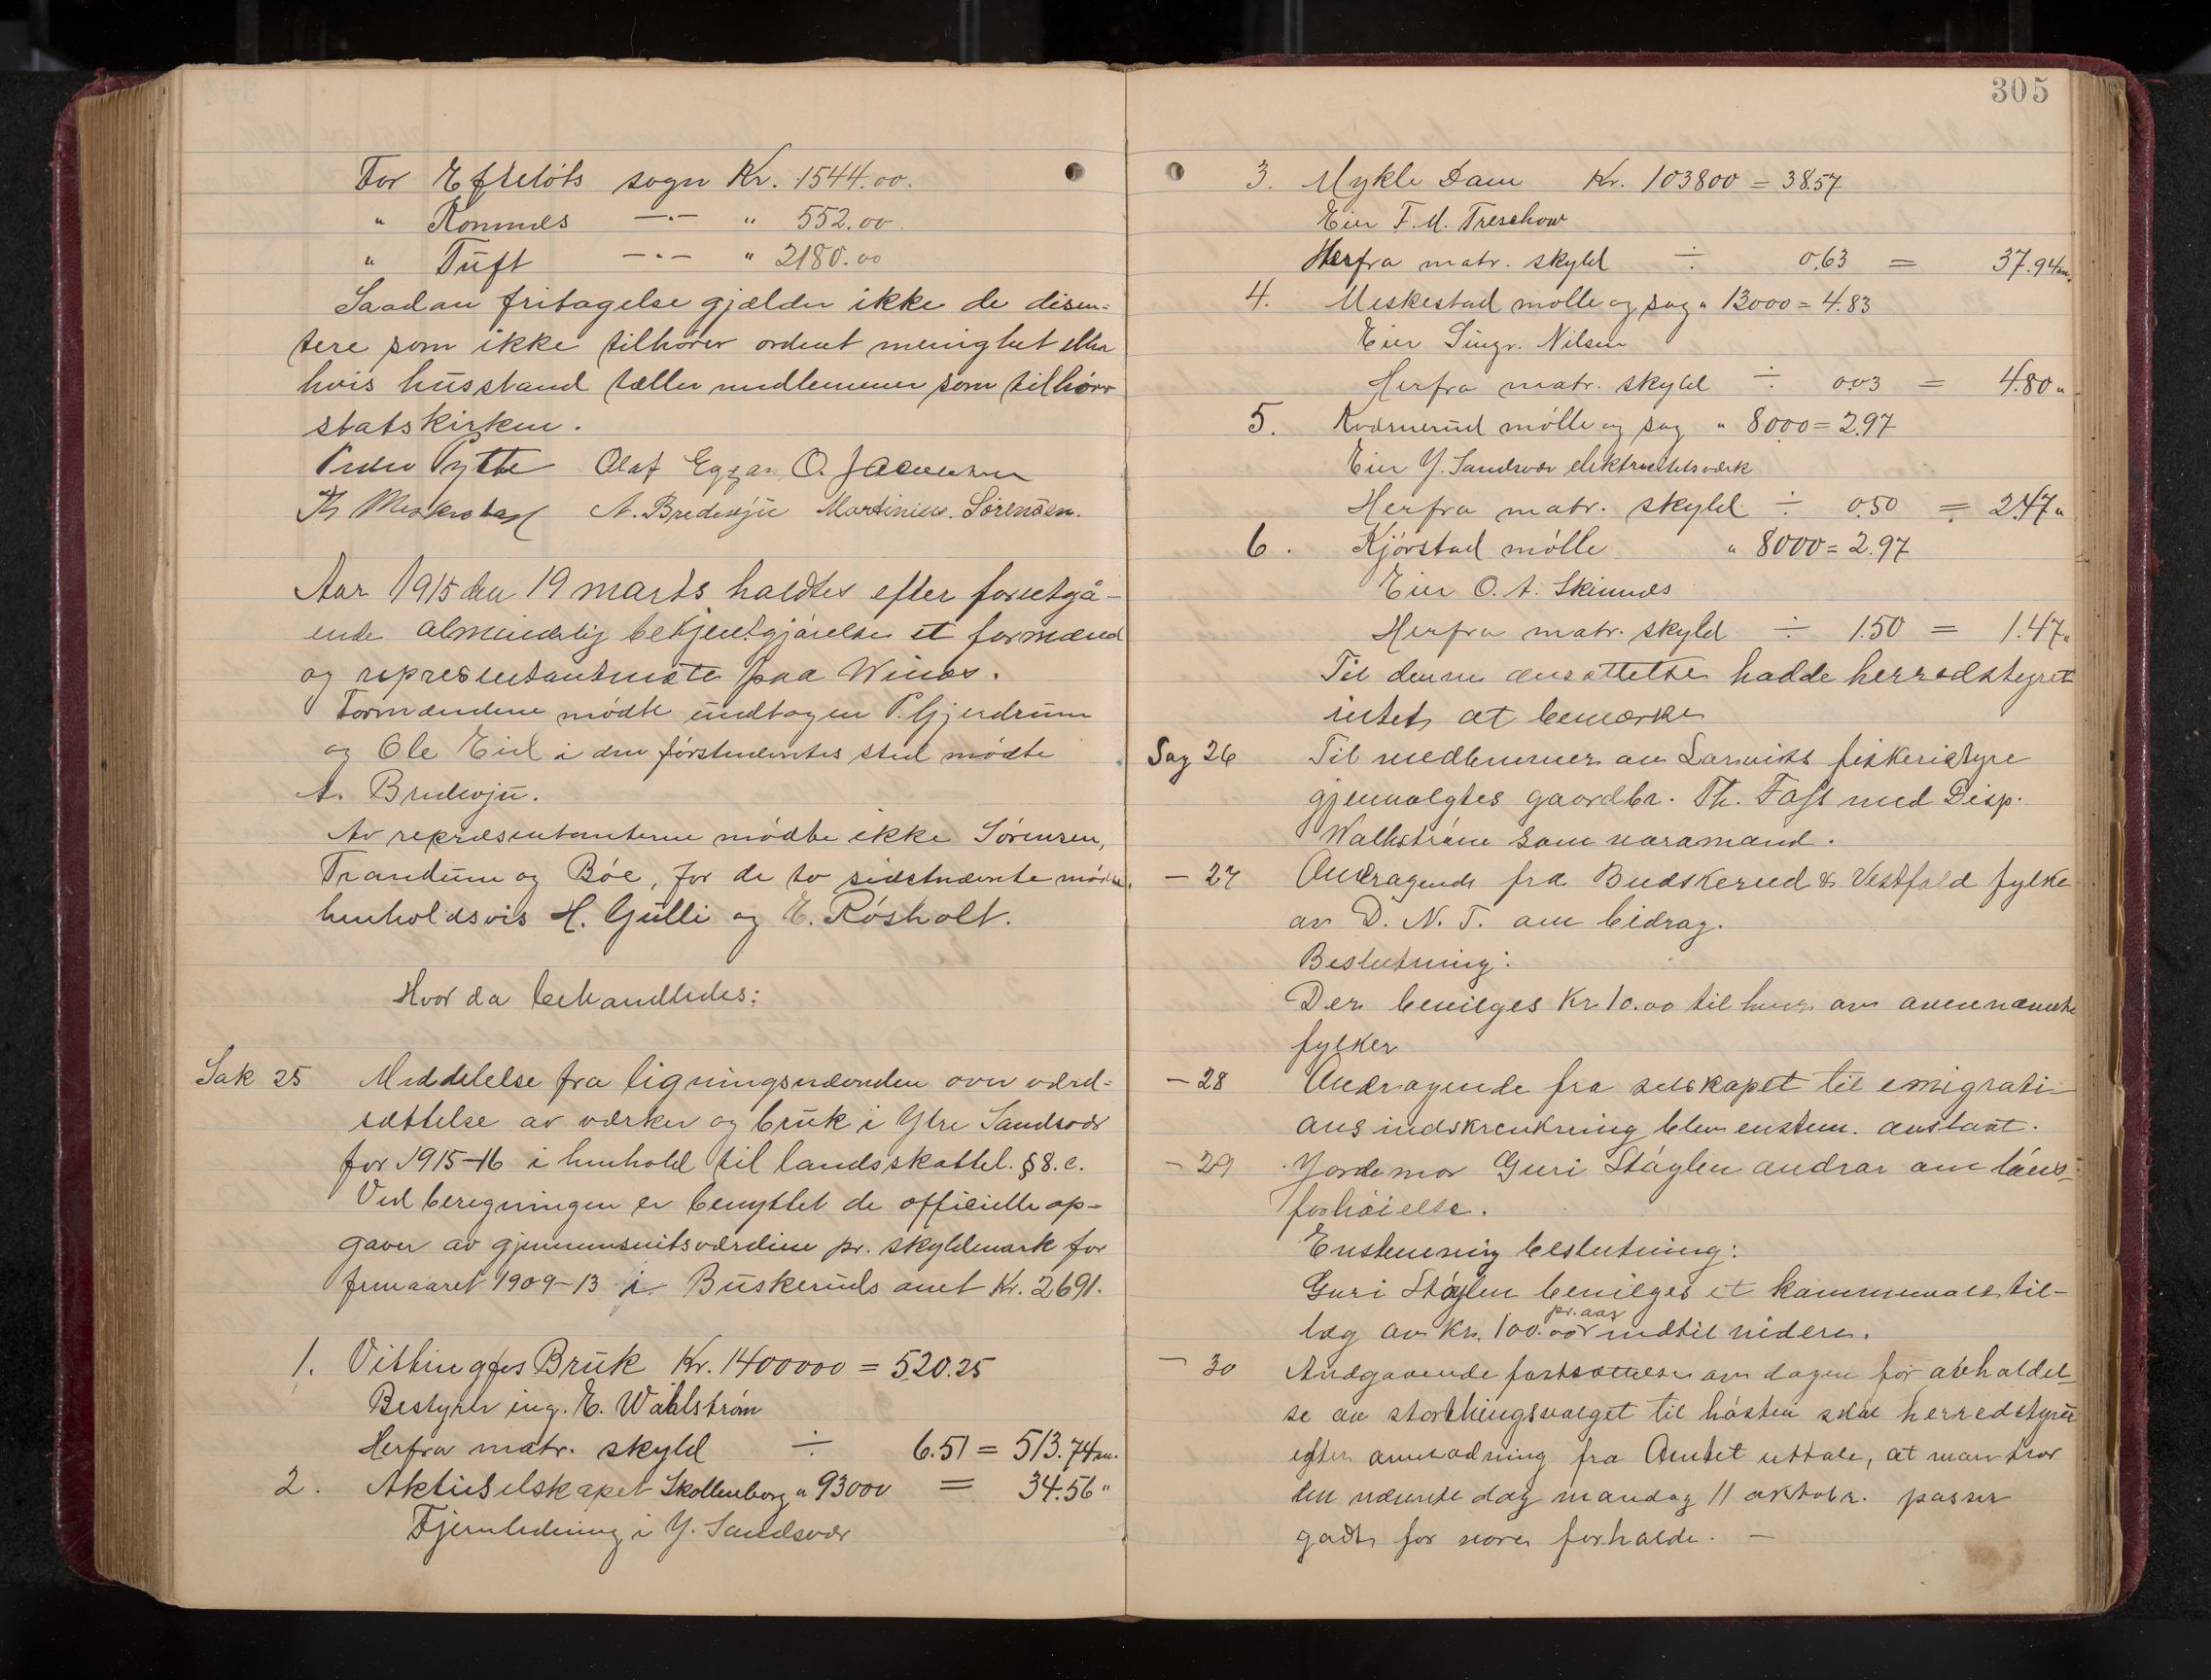 For Efteløts sogn Kr. 1544.00.
" Komnes —"— " 552.00.
" Tuft —"— " 2180.00
Saadan fritagelse gjælder ikke de disen=
tere som ikke tilhører ordent menighet eller
hvis husstand tæller medlemmer som tilhører
statskirken.
Peder Pytte Olaf Eggar O. Jacobsen
Th Meskestad A. Bredesju Martinius. Sørensen.
Aar 1915 den 19 marts holdtes efter forutgå-
ende almindelig bekjentgjørelse et formænd
og representantmøte paa Winæs.
Formændene mødte undtagen P. Gjendrum
og Ole Eid i den førstnævntes sted mødte
A. Bredesju.
Av repræsentanterne mødte ikke Sørensen,
Trandum og Bøe, for de to sidstnævnte mødte
henholdsvis H. Gulli og E. Røsholt.
Hvor da behandledes:
Sak 25 Meddelelse fra ligningsnævnden over værd=
sættelse av verker og bruk i Ytre Sandsvær
for 1915-16 i henhold til landsskattel. § 8. c.
Ved beregningen er benyttet de officielle op-
gaver av gjennemsnitsværdien pr. skyldmark for
femaaret 1909-13 i Buskeruds amt Kr. 2691.
1. Vittingfos Bruk Kr. 1400000 = 520.25
Bestyrer ing. E. Wahlstrøm
Herfra matr. skyld ÷ 6.51 = 513.74 m.
2. Aktieselskapet Skollenborg " 93000 = 34.56 "
Fjernledning i Y. Sandsvær
305
3. Mykle Dam Kr. 103800 = 38.57
Eier F. M. Treschow
Herfra matr. skyld ÷ 0.63 = 37.94 m.
4. Meskestad mølle og sag " 13000 = 4.83
Eier Singr. Nilsen
Herfra matr. skyld ÷ 0.03 = 4.80 "
5. Kværnerud mølle og sag " 8000 = 2.97
Eier Y. Sandsvær elektricitetsverk
Herfra matr. skyld ÷ 0.50 = 2.47 "
6. Kjørstad mølle " 8000 = 2.97
Eier O. A. Skinnes
Herfra matr. skyld ÷ 1.50 = 1.47 "
Til denne ansættelse hadde herredstyret
intet at bemærke
Sag 26 Til medlemmer av Larviks fiskeristyre
gjenvalgtes gaardbr. Th. Foss med Disp.
Walhstrøm som varamand.
— 27 Andragende fra Budskerud & Vestfold fylke
av D. N. T. om bidrag.
Beslutning:
Der bevilges Kr 10.00 til hver av ovennævnte
fylker
— 28 Andragende fra selskapet til emigrati-
ons indskrenkning blev enstem. avslaat.
— 29 Jordemor Guri Støylen andrar om løns=
forhøielse.
Enstemmig beslutning:
Guri Støylen bevilges et kommunalt til-
læg av Kr. 100.00 pr. aar indtil videre.
— 30 Andgaaende fastsættelse av dagen for avholdel=
se av storthingsvalget til høsten skal herredstyret
efter anmodning fra Amtet uttale, at man tror
den nævnte dag mandag 11 oktobr. passer
godt for vore forholde. —